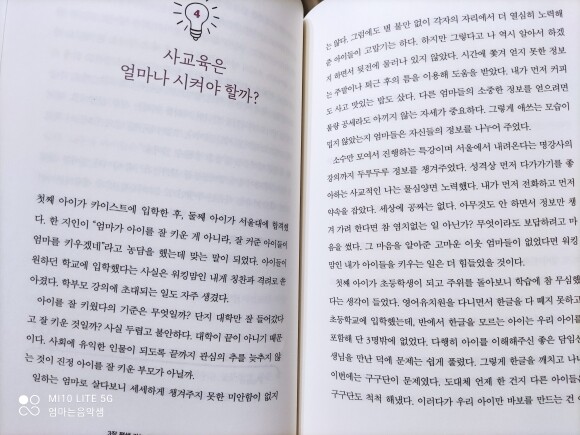 4
사교육은
얼마나 시켜야 할까?
첫째 아이가 카이스트에 입학한 후, 둘째 아이가 서울대에 합격했
다. 한 지인이 "엄마가 아이를 잘 키운 게 아니라, 잘 커준 아이들이
엄마를 키우겠네"라고 농담을 했는데 맞는 말이 되었다. 아이들이
원하던 학교에 입학했다는 사실은 워킹맘인 내게 칭찬과 격려로 돌
아왔다. 학부모 강의에 초대되는 일도 자주 생겼다.
아이를 잘 키웠다의 기준은 무엇일까? 단지 대학만 잘 들어갔다
고 잘 키운 것일까? 사실 두렵고 불안하다. 대학이 끝이 아니기 때문
이다. 사회에 유익한 인물이 되도록 끝까지 관심의 추를 늦추지 않
는 것이 진정 아이를 잘 키운 부모가 아닐까.
일하는 엄마로 살다보니 세세하게 챙겨주지 못한 미안함이 없지
MI 10 LITE 5G
엄마는음악샘
3장
는 않다. 그럼에도 별 불만 없이 각자의 자리에서 더 열심히 노력해
준 아이들이 고맙기는 하다. 하지만 그렇다고 나 역시 알아서 하겠
지 하면서 뒷전에 물러나 있지 않았다. 시간에 쫓겨 얻지 못한 정보
는 주말이나 퇴근 후의 틈을 이용해 도움을 받았다. 내가 먼저 커피
도 사고 맛있는 밥도 샀다. 다른 엄마들의 소중한 정보를 얻으려면
물량 공세라도 아끼지 않는 자세가 중요하다. 그렇게 애쓰는 모습이
밉지 않았는지 엄마들은 자신들의 정보를 나누어 주었다.
소수만 모여서 진행하는 특강이며 서울에서 내려온다는 명강사의
강의까지 두루두루 정보를 챙겨주었다. 성격상 먼저 다가가기를 좋
아하는 사교적인 나는 물심양면 노력했다. 내가 먼저 전화하고 먼저
약속을 잡았다. 세상에 공짜는 없다. 아무것도 안 하면서 정보만 챙
겨 가려 한다면 참 염치없는 일 아닌가? 무엇이라도 보답하려고 마
음을 썼다. 그 마음을 알아준 고마운 이웃 엄마들이 없었다면 워킹
맘인 내가 아이들을 키우는 일은 더 힘들었을 것이다.
첫째 아이가 초등학생이 되고 주위를 돌아보니 학습에 참 무심했
다는 생각이 들었다. 영어유치원을 다니면서 한글을 다 떼지 못하고
초등학교에 입학했는데, 반에서 한글을 모르는 아이는 우리 아이를
포함해 단 3명밖에 없었다. 다행히 아이를 이해해주신 좋은 담임선
생님을 만난 덕에 문제는 쉽게 풀렸다. 그렇게 한글을 깨치고 나니
이번에는 구구단이 문제였다. 도대체 언제 한 건지 다른 아이들은
구구단도 척척 해냈다. 이러다가 우리 아이만 바보를 만드는 건 아